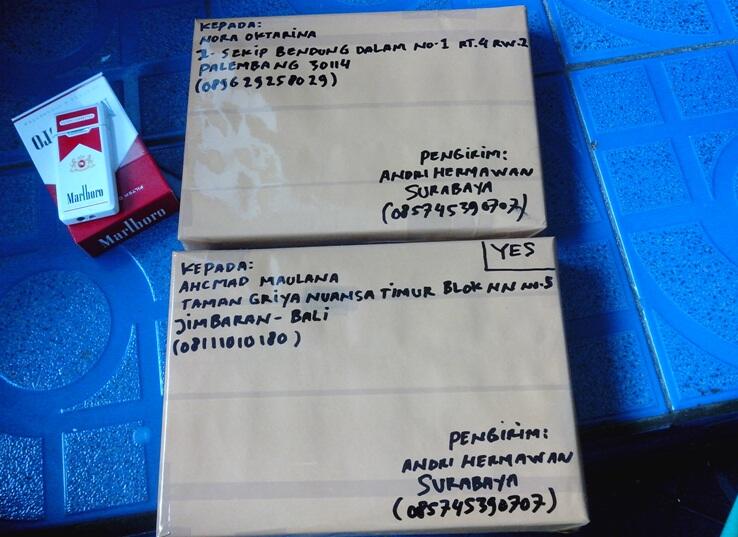 KEPADA:
NORA OKTARINA
JL. SEKIP BENDUNG DALAM NO.1 RT.4 RW.2
PALEMBANG 30114
(089629258029)
PENGIRIM:
ANDRI HERMAWAN
SURABAYA
(085745390707)
YES
KEPADA:
AHCMAD MAULANA
TAMAN GRIYA NUANSA TIMUR BLOK NN NO.5
JIMBARAN - BALI
(08111010180)
PENGIRIM:
ANDRI HERMAWAN
SURABAYA
(085745390707)
Marlboro
Marlboro